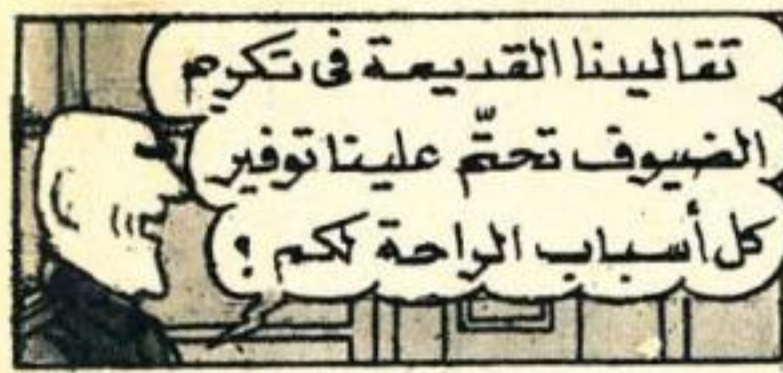 تقاليدنا القديمة فى تكريم
الضيوف تحتّم علينا توفير
كل أسباب الراحة لكم ؟